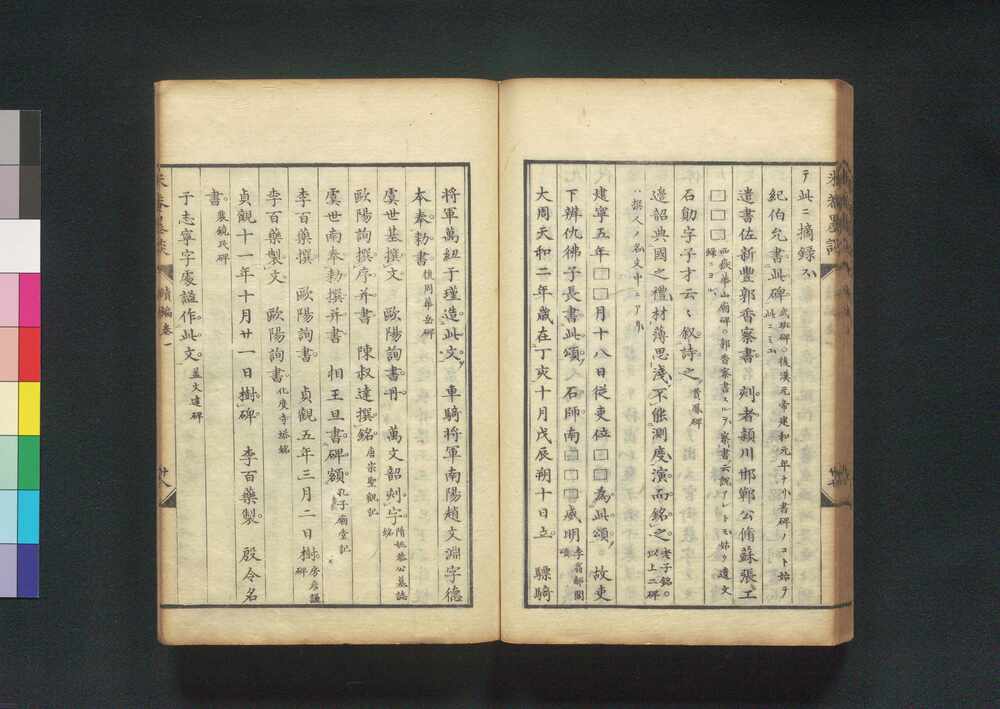 テ此ニ摘録ス
紀伯允書此碑 武班碑○後漢元帝建和元年ナリ書碑ノコト始テ此ニミユ
遣書佐新豊郭香察書 刻者潁川邯鄲公脩蘇張工
□□□ 西嶽華山廟碑○郭香察書スルヲ察書云説アレトモ姑ク遺文録ニヨル
石勛字子才云々叙詩之 費鳳碑
邉韶典國之禮材薄思淺不能測度演而銘之 老子銘○以上二碑
ハ撰人ノ名文中ニアリ
建寧五年□□月十八日従吏位□□為此頌 故吏
下辨仇彿子長書此頌 石師南□□□威明 李翕郙閣頌
大周天和二年歳在丁亥十月戊辰朔十日立 驃騎
將軍萬紐于瑾造此文 車騎將軍南陽趙文淵字德
本奉勅書 後周華岳碑
虞世基撰文 歐陽詢書丹 萬文韶刻字 隋姚恭公墓誌銘
歐陽詢撰序并書 陳叔達撰銘 唐宗聖觀記
虞世南奉勅撰并書 相王旦書碑額 孔子廟堂記
李百藥撰 歐陽詢書 貞觀五年三月二日樹 房彦謙碑
李百藥製文 歐陽詢書 化度寺塔銘
貞觀十一年十月廿一日樹碑 李百藥製 殷令名
書 裴鏡民碑
于志寧字處謐作此文 盖文達碑
續編卷一
廿八